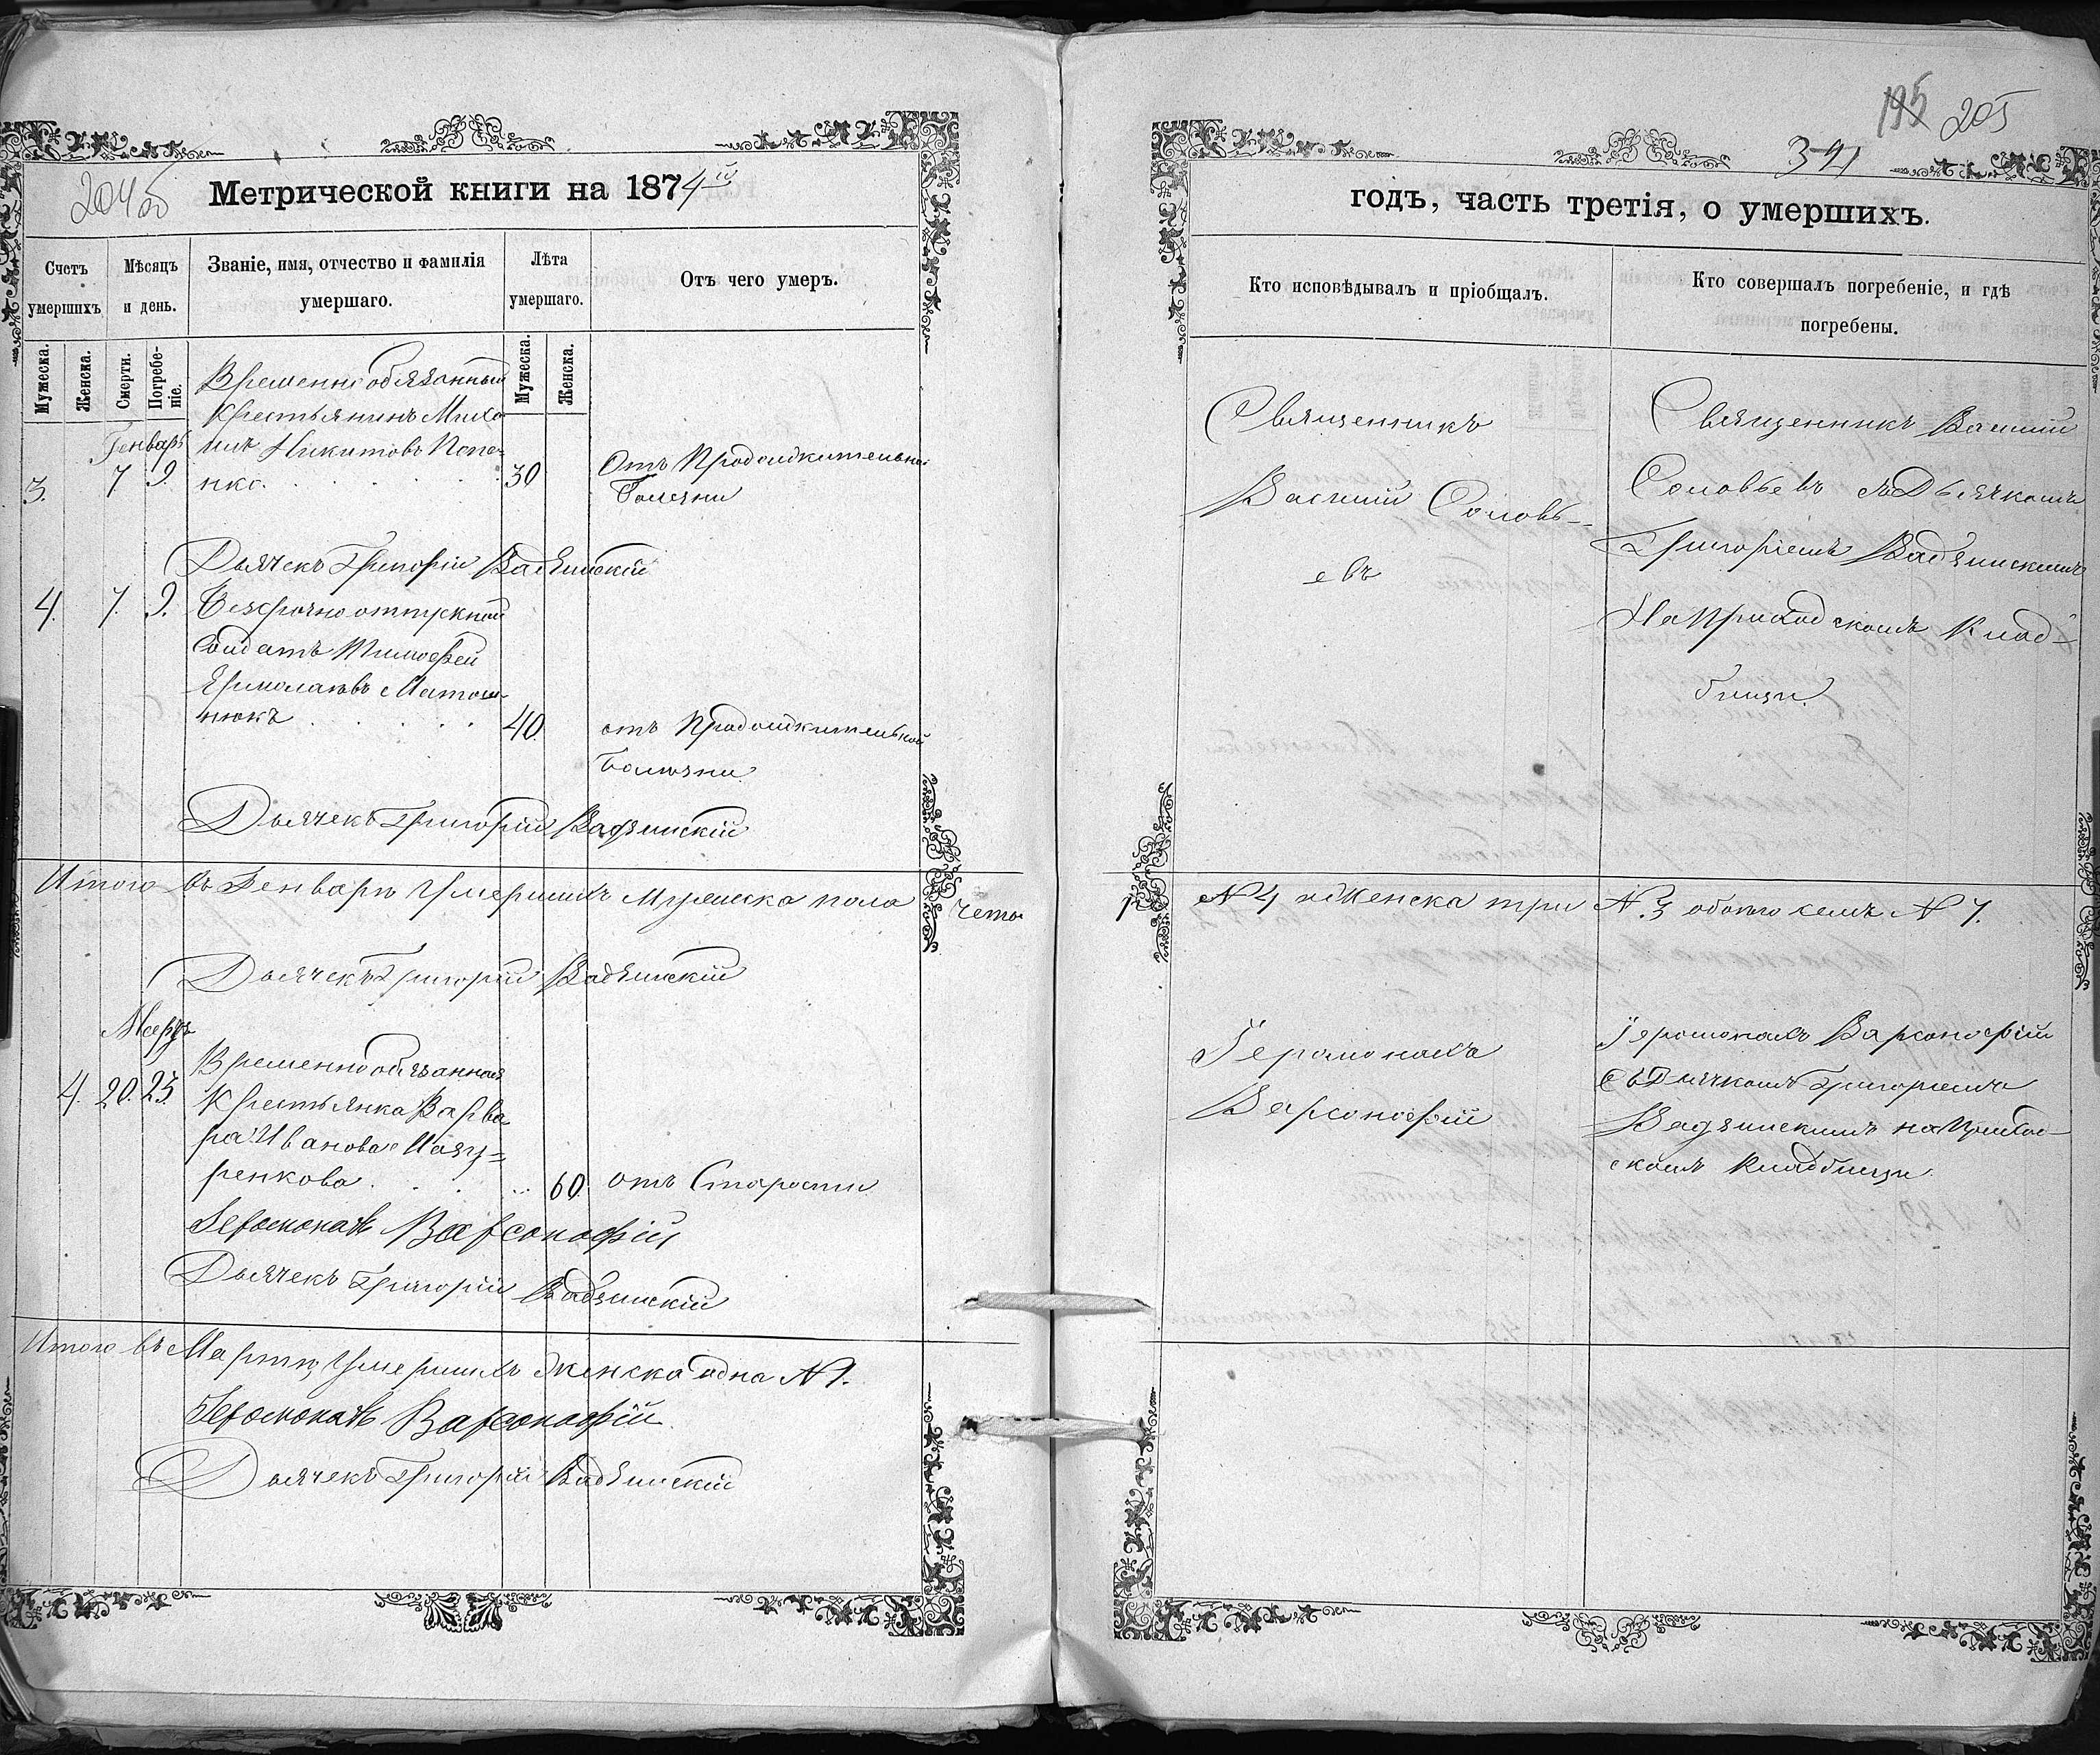 204 об
Метрической книги на 1874й
Счетъ умершихъ
Мѣсяцъ и день.
Званіе, имя, отчество и фамилія умершаго.
Лѣта умершаго.
Отъ чего умеръ.
Мужеска.
Женска.
Смерти.
Погребеніе.
Мужеска.
Женска.
Временно обязанный
Крестьянинъ Миха
Генварь
илъ Никитовъ Попе-
3. 7. 9. нко 30 Отъ Продолжительной
Болезни
Дьячекъ Григорій Вадзинскій
4. 7. 9. Безсрочно отпускной
Солдатъ Тимофей
Ермолаевъ Матош-
нюкъ 40. отъ Продолжительной
Болезни
Дьячекъ Григорій Вадзинскій
Итого въ Генварѣ Умершихъ Мужеска пола четы
Дьячекъ Григорій Вадзинскій
Мартъ
Временнообязанная
4. 20. 23. Крестьянка Варва
ра Иванова Назу-
ренкова 60. отъ Старости
Іеромонахъ Варсонофій
Дьячекъ Григорій Вадзинскій
Итого въ Мартѣ Умершихъ женска одна № 1.
Іеромонахъ Варсонофій
Дьячекъ Григорій Вадзинскій
195 205
341
годъ, часть третія, о умершихъ.
Кто исповѣдывалъ и пріобщалъ.
Кто совершалъ погребеніе, и гдѣ погребены.
Священникъ
Василій Соловь-
евъ
Священникъ Василій
Соловьевъ съ Дьячкомъ
Григоріемъ Вадзинскимъ
На Приходскомъ Клад-
бищи.
р № 4 а Женска три № 3 обоего № 7.
Іеромонахъ
Варсонофій
Іеромонахъ Варсонофій
съ Дьячкомъ Григоріемъ
Вадзинскимъ на Приход-
скомъ Кладбищи.